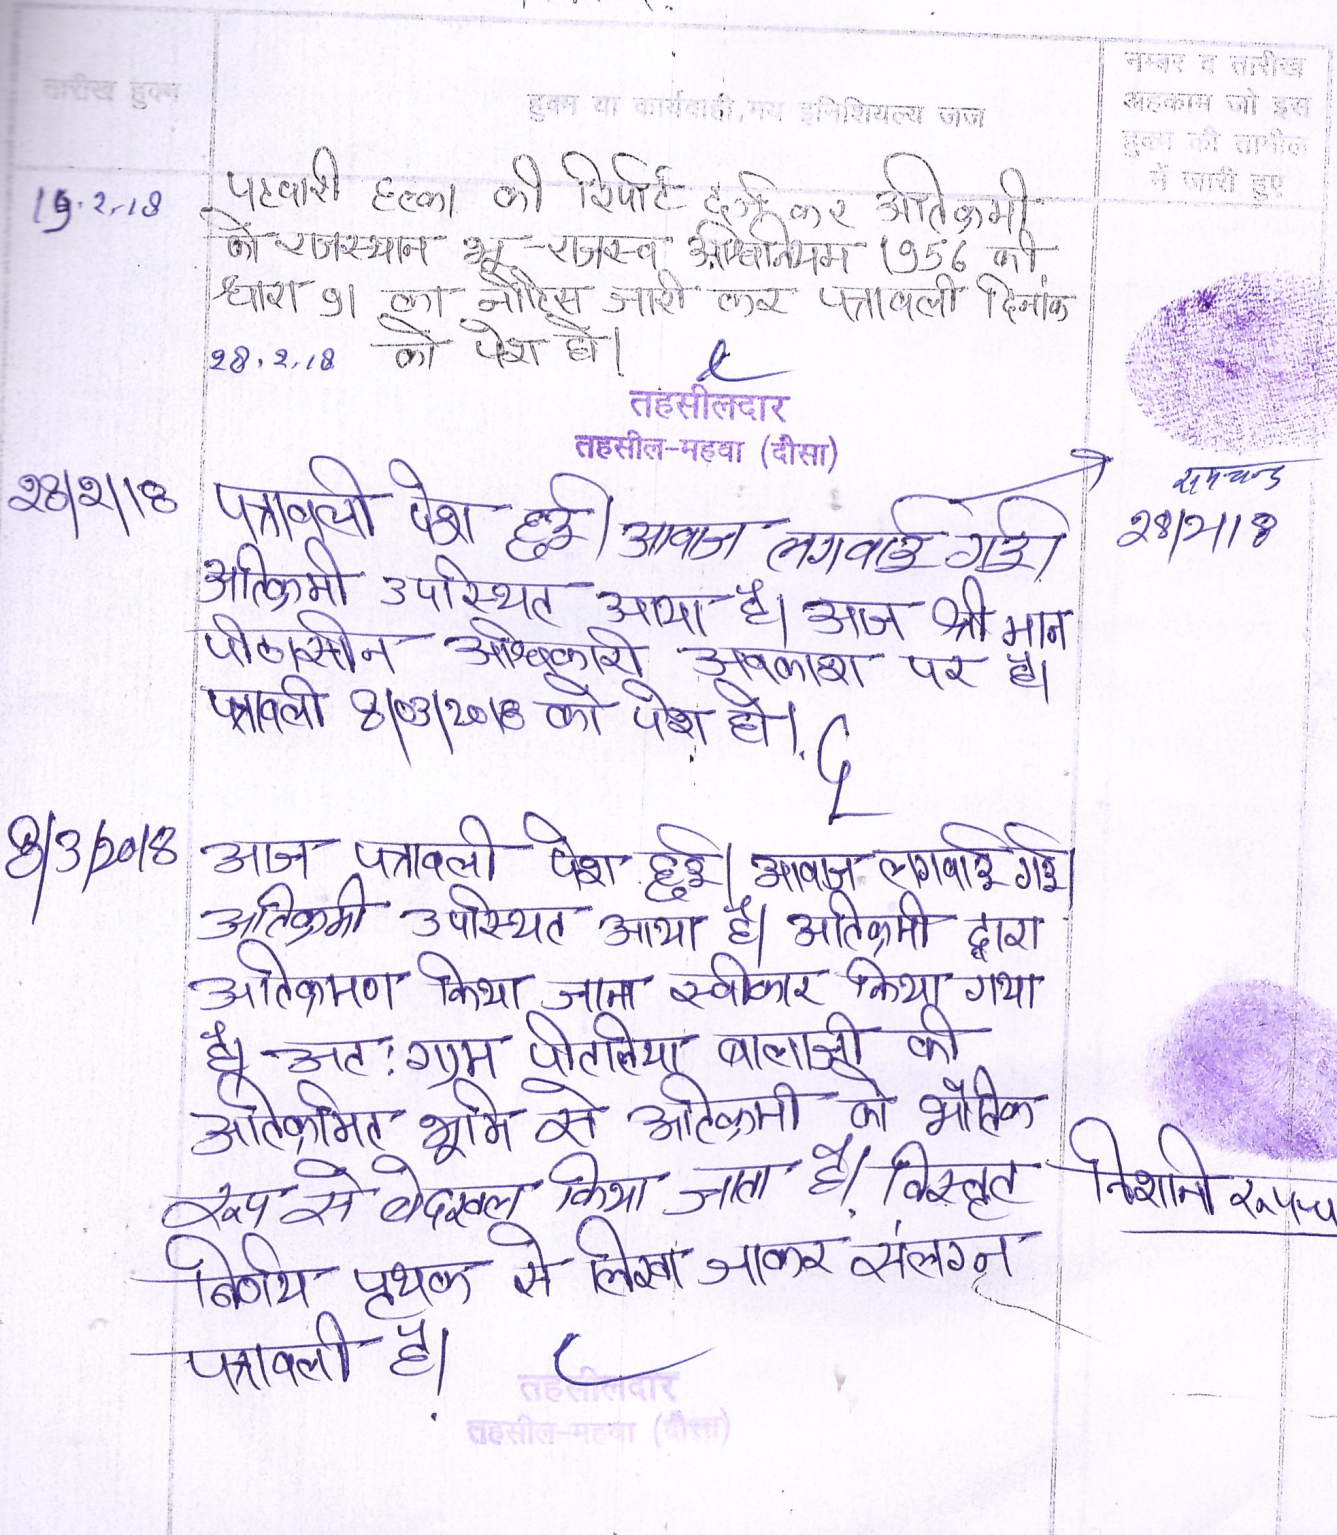 तारीख हुक्म
हुक्म या कार्यवाही मय इनिशियल्य जज
नम्बर व तारीख
अहकाम जो इस
हुक्म की तामील
में जारी हुए
15.2.18
पटवारी हल्का की रिपोर्ट दर्ज कर अतिक्रमी
को राजस्थान भू-राजस्व अधिनियम 1956 की
धारा 91 का नोटिस जारी कर पत्रावली दिनांक
28.2.18 को पेश हो।
तहसीलदार
तहसील-महवा (दौसा)
28/2/18
पत्रावली पेश हुई। आवाज लगवाई गई।
अतिक्रमी उपस्थित आया है। आज श्री मान
पीठासीन अधिकारी अवकाश पर है।
पत्रावली 8/03/2018 को पेश हो।
28/2/18
8/3/2018
आज पत्रावली पेश हुई। आवाज लगवाई गई।
अतिक्रमी उपस्थित आया है। अतिक्रमी द्वारा
अतिक्रमण किया जाना स्वीकार किया गया
है। अत: ग्राम पीतलिया बालाजी की
अतिक्रमित भूमि से अतिक्रमी को भौतिक
रूप से बेदखल किया जाता है। विस्तृत
निर्णय पृथक से लिखा जाकर संलग्न
पत्रावली है।
निशानी रूपच
तहसीलदार
तहसील-महवा (दौसा)